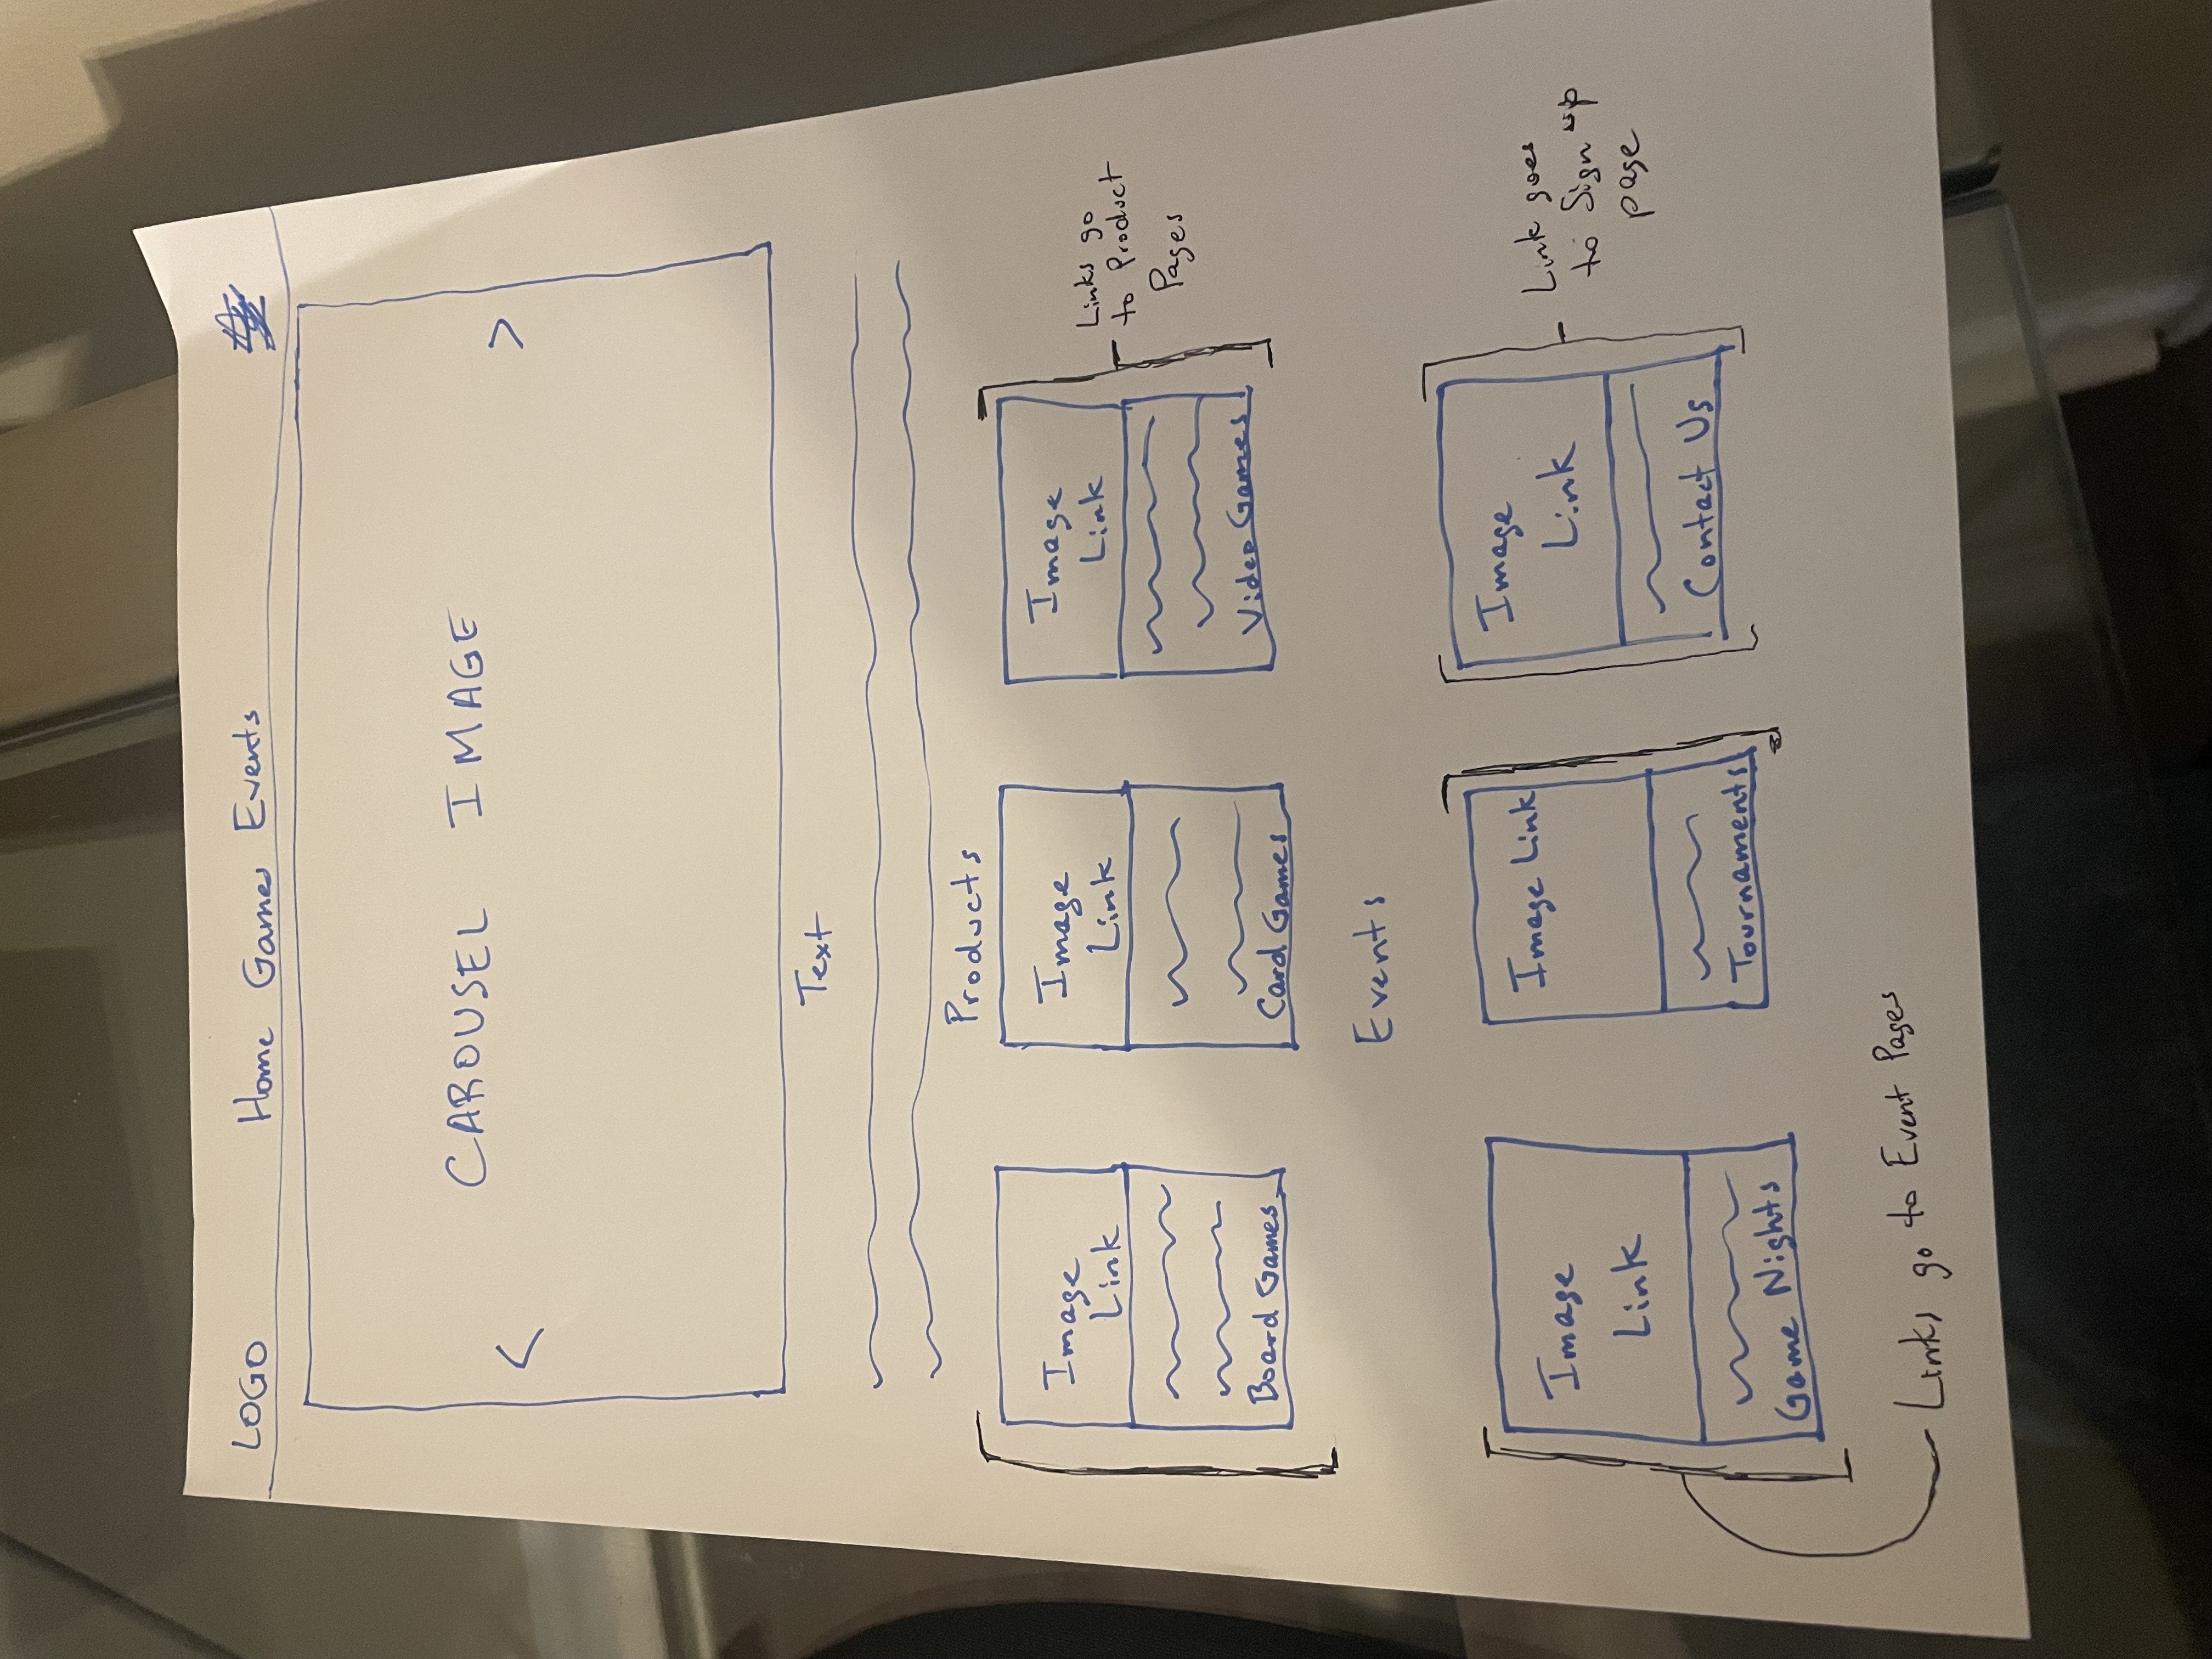 LOGO
Home Games Events
<
CAROUSEL IMAGE
>
Text
Products
Image
Link
Board Games
Image
Link
Card Games
Image
Link
Video Games
Links go
to Product
Pages
Events
Image
Link
Game Nights
Image Link
Tournaments
Image
Link
Contact Us
Link goes
to Sign up
page
Links go to Event Pages